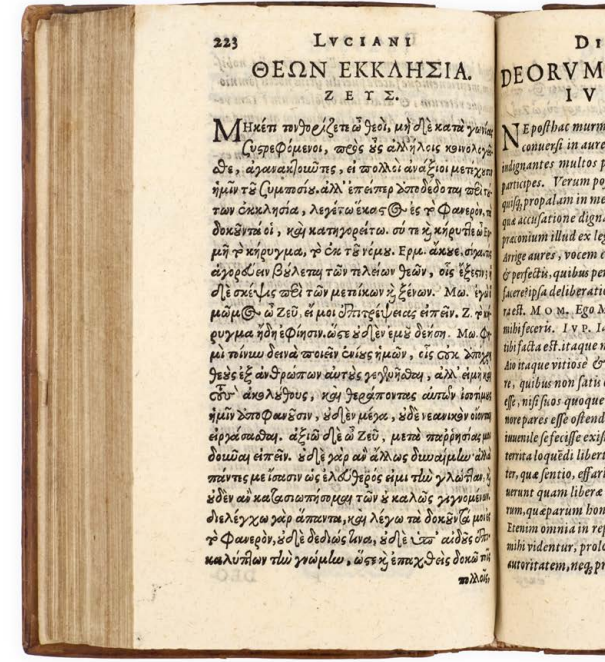 223 LVCIANI
ΘΕΩΝ ΕΚΚΛΗΣΙΑ.
ΖΕΥΣ.
ΜΗκέτι τονθορίζετε ὦ θεοὶ, μὴ δὲ κατὰ γωνίας
συστρεφόμενοι, πρὸς οὖς ἀλλήλοις κοινολογεῖ
σθε, ἀγανακτοῦντες, εἰ πολλοὶ ἀνάξιοι μετέχουσιν
ἡμῖν τοῦ συμποσίου. ἀλλ' ἐπείπερ ἀποδέδοται περὶ τού
των ἐκκλησία, λεγέτω ἕκαστος ἐς τὸ φανερὸν, τὰ
δοκοῦντά οἱ, καὶ κατηγορείτω. σύ τε κήρυττε ὦ Ἑρ
μῆ τὸ κήρυγμα, τὸ ἐκ τοῦ νόμου. Ερμ. ἄκουε, σίγα, τίς
ἀγορεύειν βούλεται τῶν τελείων θεῶν, οἷς ἔξεστιν; ἡ
δὲ σκέψις περὶ τῶν μετοίκων καὶ ξένων. Μω. ἐγὼ ὁ
μῶμος ὦ Ζεῦ, εἴ μοι ἐπιτρέψειας εἰπεῖν. Ζ. τὸ κή
ρυγμα ἤδη ἐφίησιν. ὥστε οὐδὲν ἐμοῦ δεήσῃ. Μω. Φη
μὶ τοίνυν δεινὰ ποιεῖν ἐνίους ἡμῶν, οἷς οὐκ ἀπόχρη
θεοὺς ἐξ ἀνθρώπων αὐτοὺς γεγενῆσθαι, ἀλλ' εἰ μὴ καὶ
τοὺς ἀκολούθους, καὶ θεράποντας αὐτῶν ἰσοτίμους
ἡμῖν ἀποφανοῦσιν, οὐδὲν μέγα, οὐδὲ νεανικὸν οἴονται
εἰργάσθαι. ἀξιῶ δὲ ὦ Ζεῦ, μετὰ παρρησίας μοι
δοῦναι εἰπεῖν. οὐδὲ γὰρ ἂν ἄλλως δυναίμην ἀλλὰ
πάντες με ἴσασιν ὡς ἐλεύθερός εἰμι τὴν γλῶτταν, καὶ
οὐδὲν ἂν κατασιωπήσομαι τῶν οὐ καλῶς γιγνομένων.
διελέγχω γὰρ ἅπαντα, καὶ λέγω τὰ δοκοῦντά μοι ἐς
τὸ φανερὸν, οὐδὲ δεδιώς τινα, οὐδὲ ὑπ' αἰδοῦς ἐπι
καλύπτων τὴν γνώμην, ὥστε καὶ ἐπαχθεῖς δοκῶ τοῖς
πολλοῖς,
DEORVM
IV
NEposthac murm
conuersi in aure
indignantes multos p
participes. Verum po
quisq, propalam in me
quæ accusatione dign
præconium illud ex leg
Arrige aures, vocem
& perfectis, quibus per
facere? ipsa deliberati
MOM. Ego M
mihi feceris. IVP. I
tibi facta est. itaque n
Aio itaque vitiosè &
quibus non satis
esse, nisi suos quoque
more pares esse ostend
iuuenile se fecisse exis
territa loquẽdi libert
ter, quæ sentio, effari
uerunt quam liberæ
rum, quæ parum hon
Etenim omnia in rep
mihi videntur, prolo
autoritatem, neq; pr